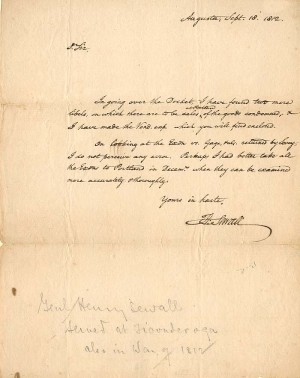 Augusta, Sept. 18. 1812.
Dr Sir,
In going over the Docket, I have found two more
libels, in which there are to be sales, of the goods condemned, &
I have made the Vend. exp. which you will find enclosed.
On looking at the vs. Gage, returned by
I do not perceive any error. Perhaps I had better take all
the to Portland in Decemr. when they can be examined
more accurately & thoroughly.
Yours in haste,
Sewall
Genl Henry Sewall
Served at Ticonderoga
also in War of 1812